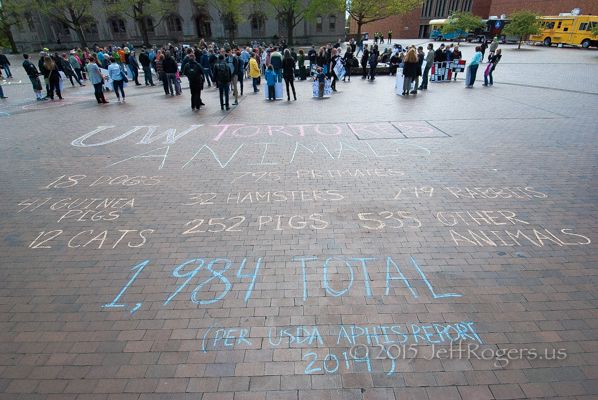 UW TORTURES
ANIMALS
18 DOGS PRIMATES
41 GUINEA PIGS 32 HAMSTERS RABBITS
12 CATS 252 PIGS 535 OTHER ANIMALS
1,984 TOTAL
(PER USDA APHIS REPORT
2014)
© 2015 JeffRogers.us